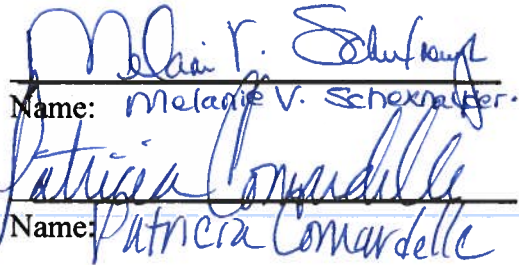 Melanie V. Schexnayder
Name: Melanie V. Schexnayder.
Patricia Comardelle
Name: Patricia Comardelle